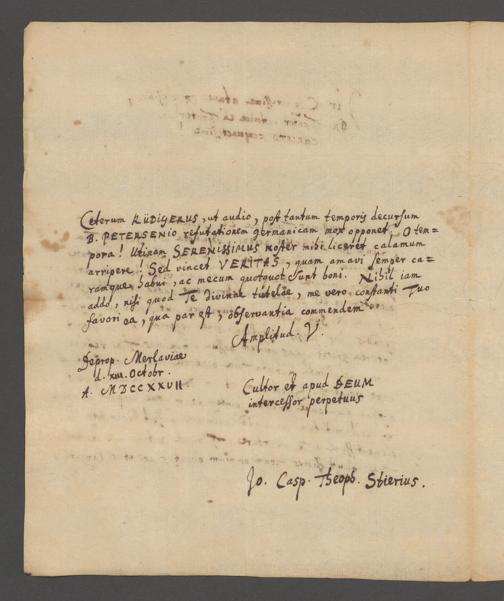 Ceterum RÜDIGERUS, ut audio, post tantum temporis decursum
B. PETERSENio refutationem germanicam mox opponet. O tem=
pora! Utinam SERENISSIMUS noster mihi liceret calamum
arripere! Sed vincet VERITAS, quam amavi semper ca=
ramque habui, ac mecum quotquot sunt boni. Nihil iam
addo, nisi quod Te divinae tutelae, me vero constanti Tuo
favori ea, qua par est, observantia commendem
Amplitud. V.
Deprop. Merlaviae
d. XIII. Octobr.
A. MDCCXXVII.
Cultor et apud DEUM
intercessor perpetuus
Jo. Casp. Theoph. Stierius.